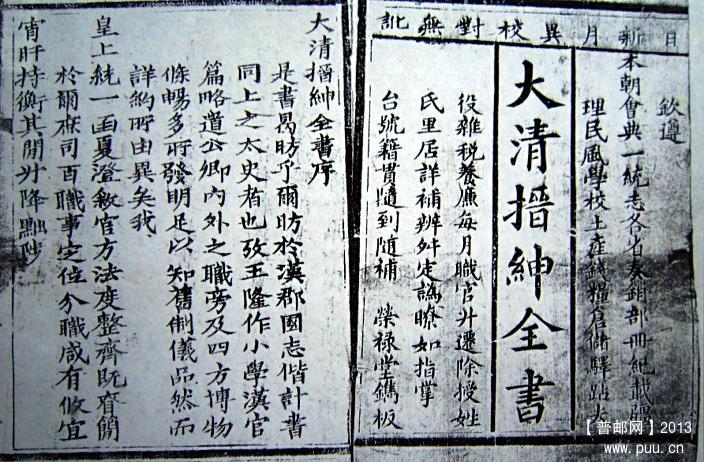 日新月異校對無訛
欽遵
本朝會典一統志各省奏銷部冊紀載疆
理民風學校土產錢糧倉儲驛站夫
大清搢紳全書
役雜稅養廉每月職官升遷除授姓
氏里居詳補辨舛定譌瞭如指掌
台號籍貫隨到隨補 榮祿堂鐫板
大清搢紳全書序
是書曷昉乎爾昉於漢郡國志偕計書
同上之太史者也攷王隆作小學漢官
篇略道公卿內外之職旁及四方博物
條暢多所發明足以知舊制儀品然而
詳約所由異矣我
皇上統一函夏澄敘官方法度整齊既
於爾庶司百職事定位分職咸有攸宜
宵旰持衡其開升降黜陟
【普邮网】2013
www.puu.cn